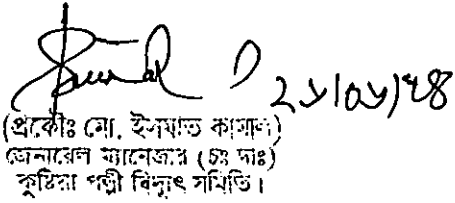 ২১/০১/২৪
(প্রকৌঃ মো. ইসমাত কামাল)
জেনারেল ম্যানেজার (চঃ দাঃ)
কুষ্টিয়া পল্লী বিদ্যুৎ সমিতি।